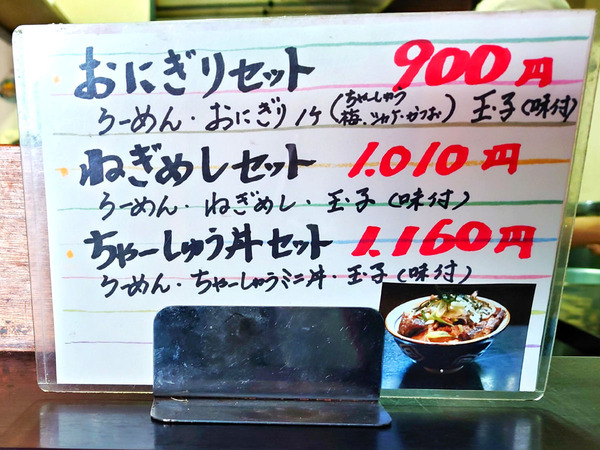 おにぎりセット 900円
らーめん・おにぎり1ケ(ちゃーしゅう 梅、シャケ・かつお) 玉子(味付)
ねぎめしセット 1.010円
らーめん・ねぎめし・玉子(味付)
ちゃーしゅう丼セット 1.160円
らーめん・ちゃーしゅうミニ丼・玉子(味付)